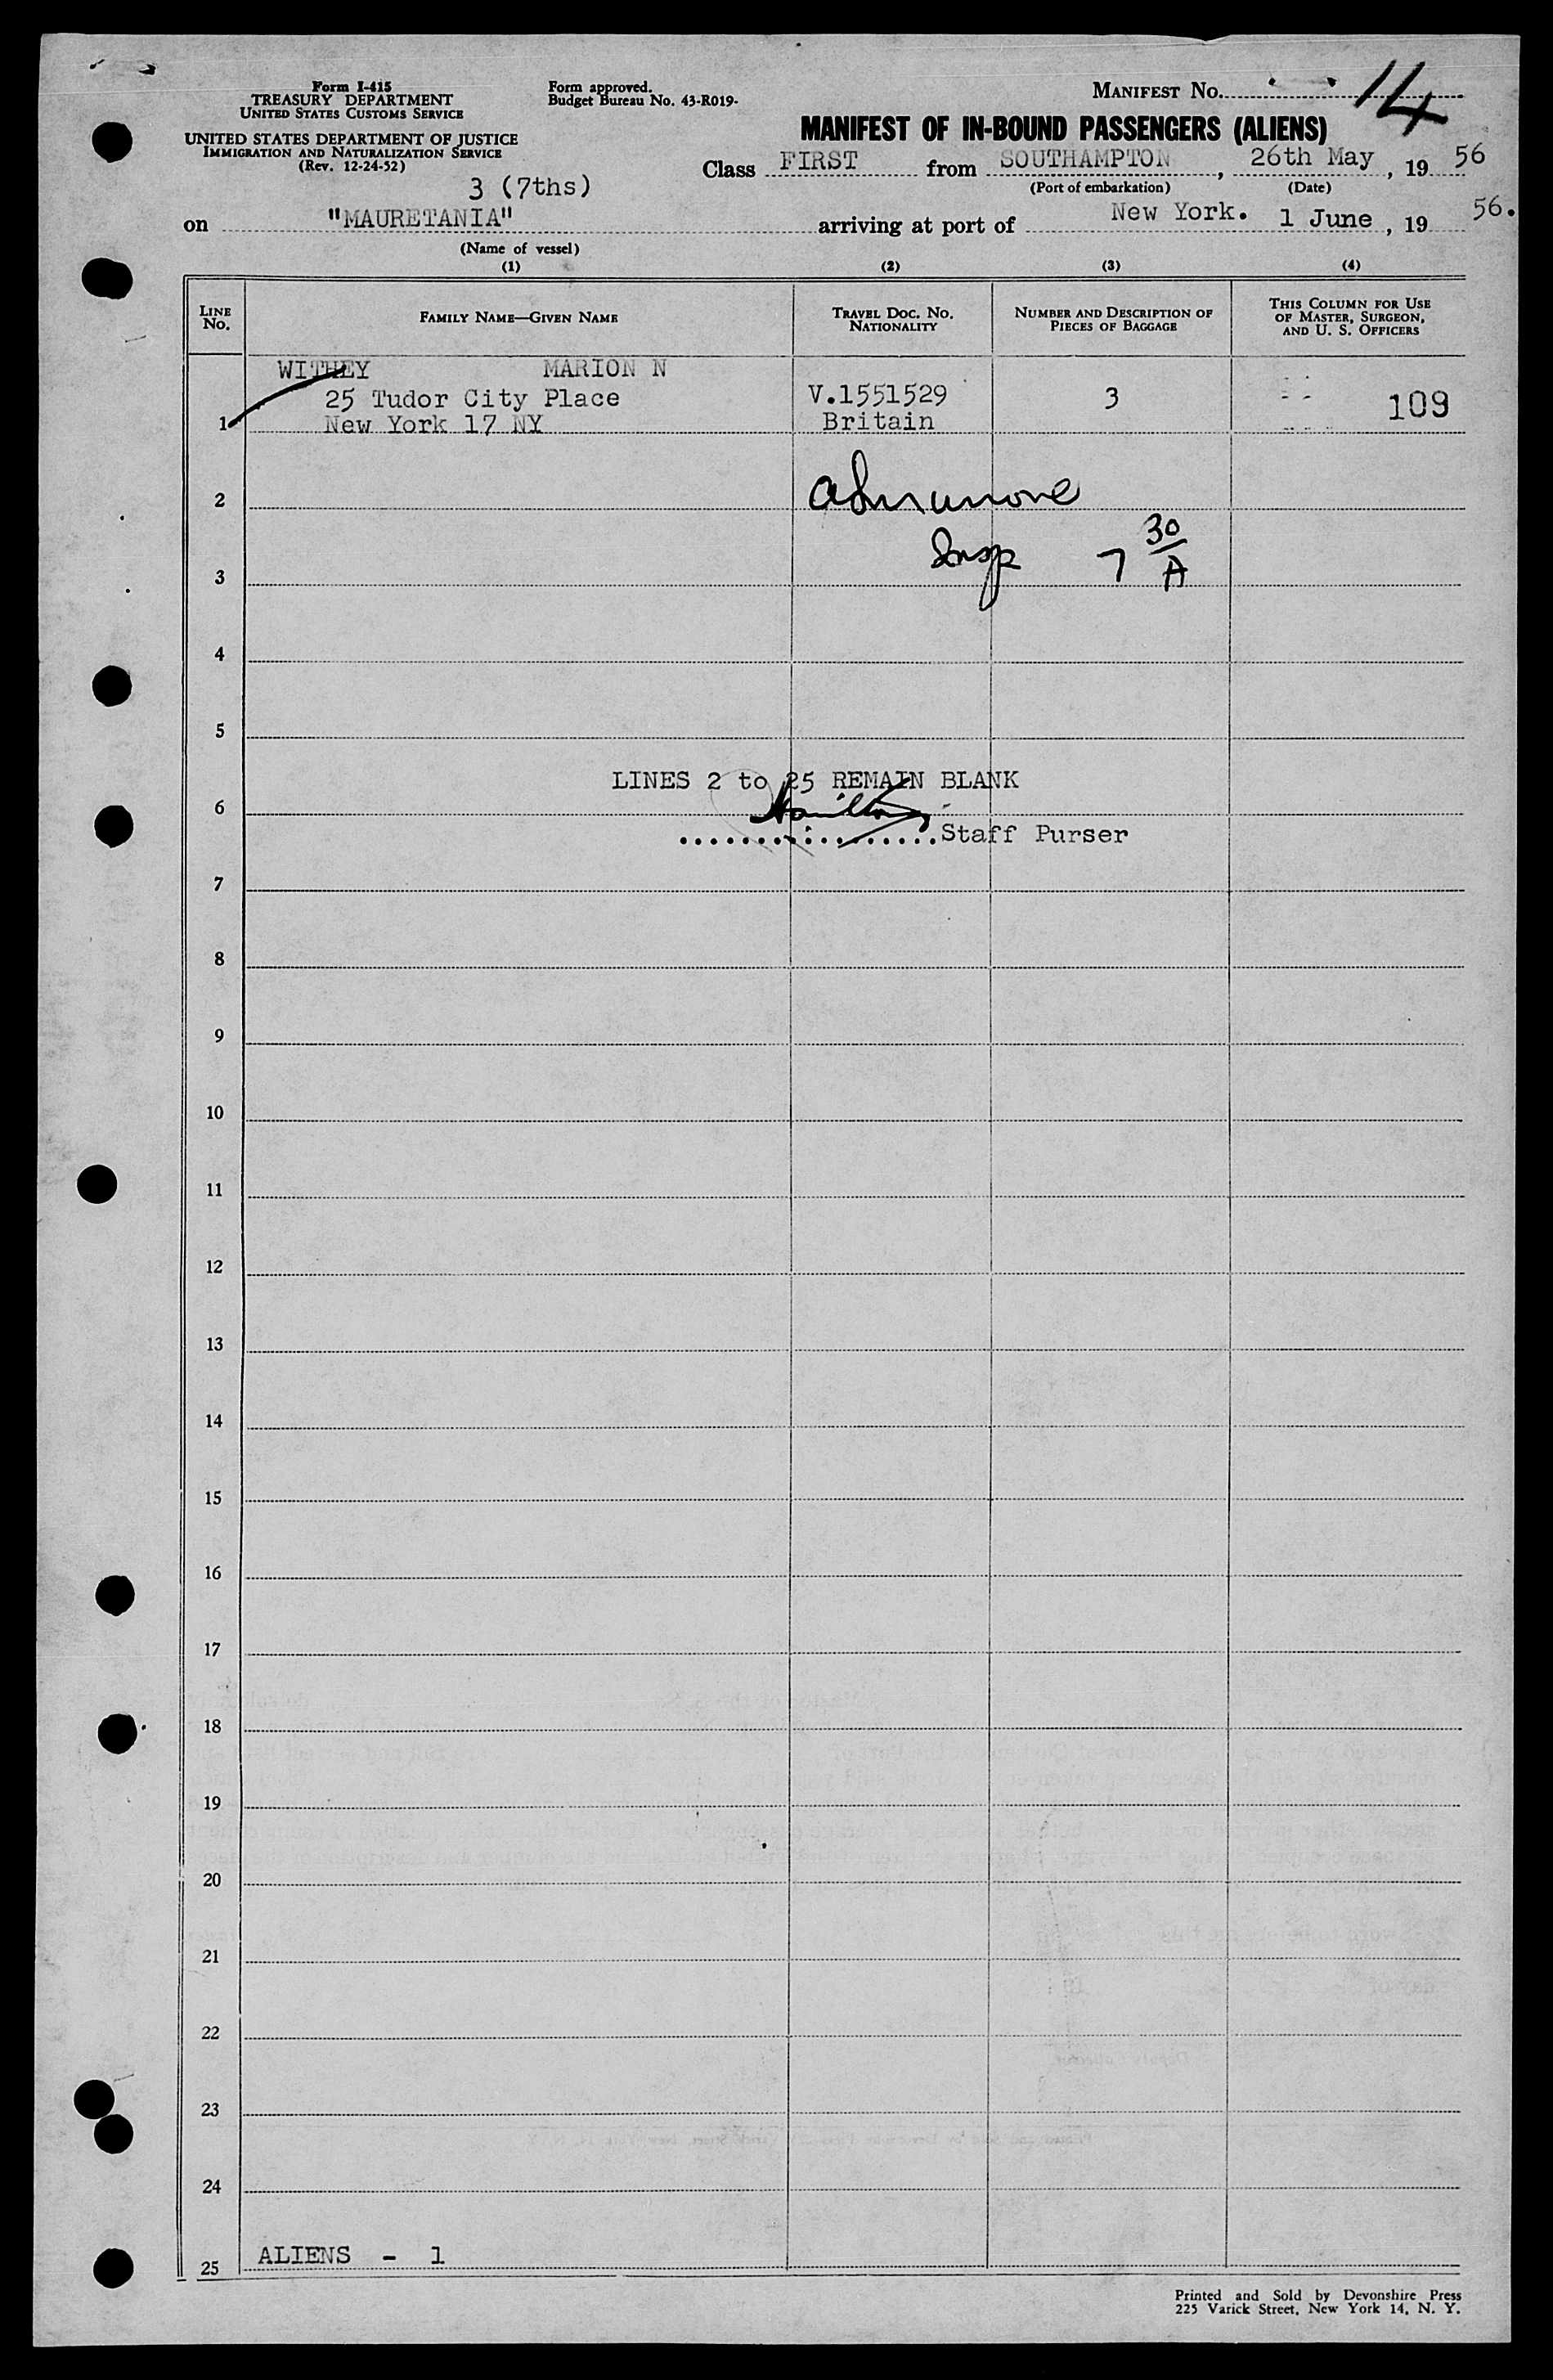 Form I-415
TREASURY DEPARTMENT
UNITED STATES CUSTOMS SERVICE
UNITED STATES DEPARTMENT OF JUSTICE
IMMIGRATION AND NATURALIZATION SERVICE
(Rev. 12-24-52)
Form approved.
Budget Bureau No. 43-R019-
MANIFEST NO. 14
MANIFEST OF IN-BOUND PASSENGERS (ALIENS)
Class FIRST from SOUTHAMPTON, 26th May, 19 56
(Port of embarkation) (Date)
3 (7ths)
on "MAURETANIA" arriving at port of New York. 1 June, 19 56.
(Name of vessel)
(1) (2) (3) (4)
LINE NO.
FAMILY NAME—GIVEN NAME
TRAVEL DOC. NO.
NATIONALITY
NUMBER AND DESCRIPTION OF
PIECES OF BAGGAGE
THIS COLUMN FOR USE
OF MASTER, SURGEON,
AND U. S. OFFICERS
WITHEY MARION N
25 Tudor City Place V.1551529 3 109
1 New York 17 NY Britain
2
Insp 7 30/A
3
4
5
LINES 2 to 25 REMAIN BLANK
6 Hamilton
Staff Purser
7
8
9
10
11
12
13
14
15
16
17
18
19
20
21
22
23
24
25 ALIENS - 1
Printed and Sold by Devonshire Press
225 Varick Street, New York 14, N. Y.